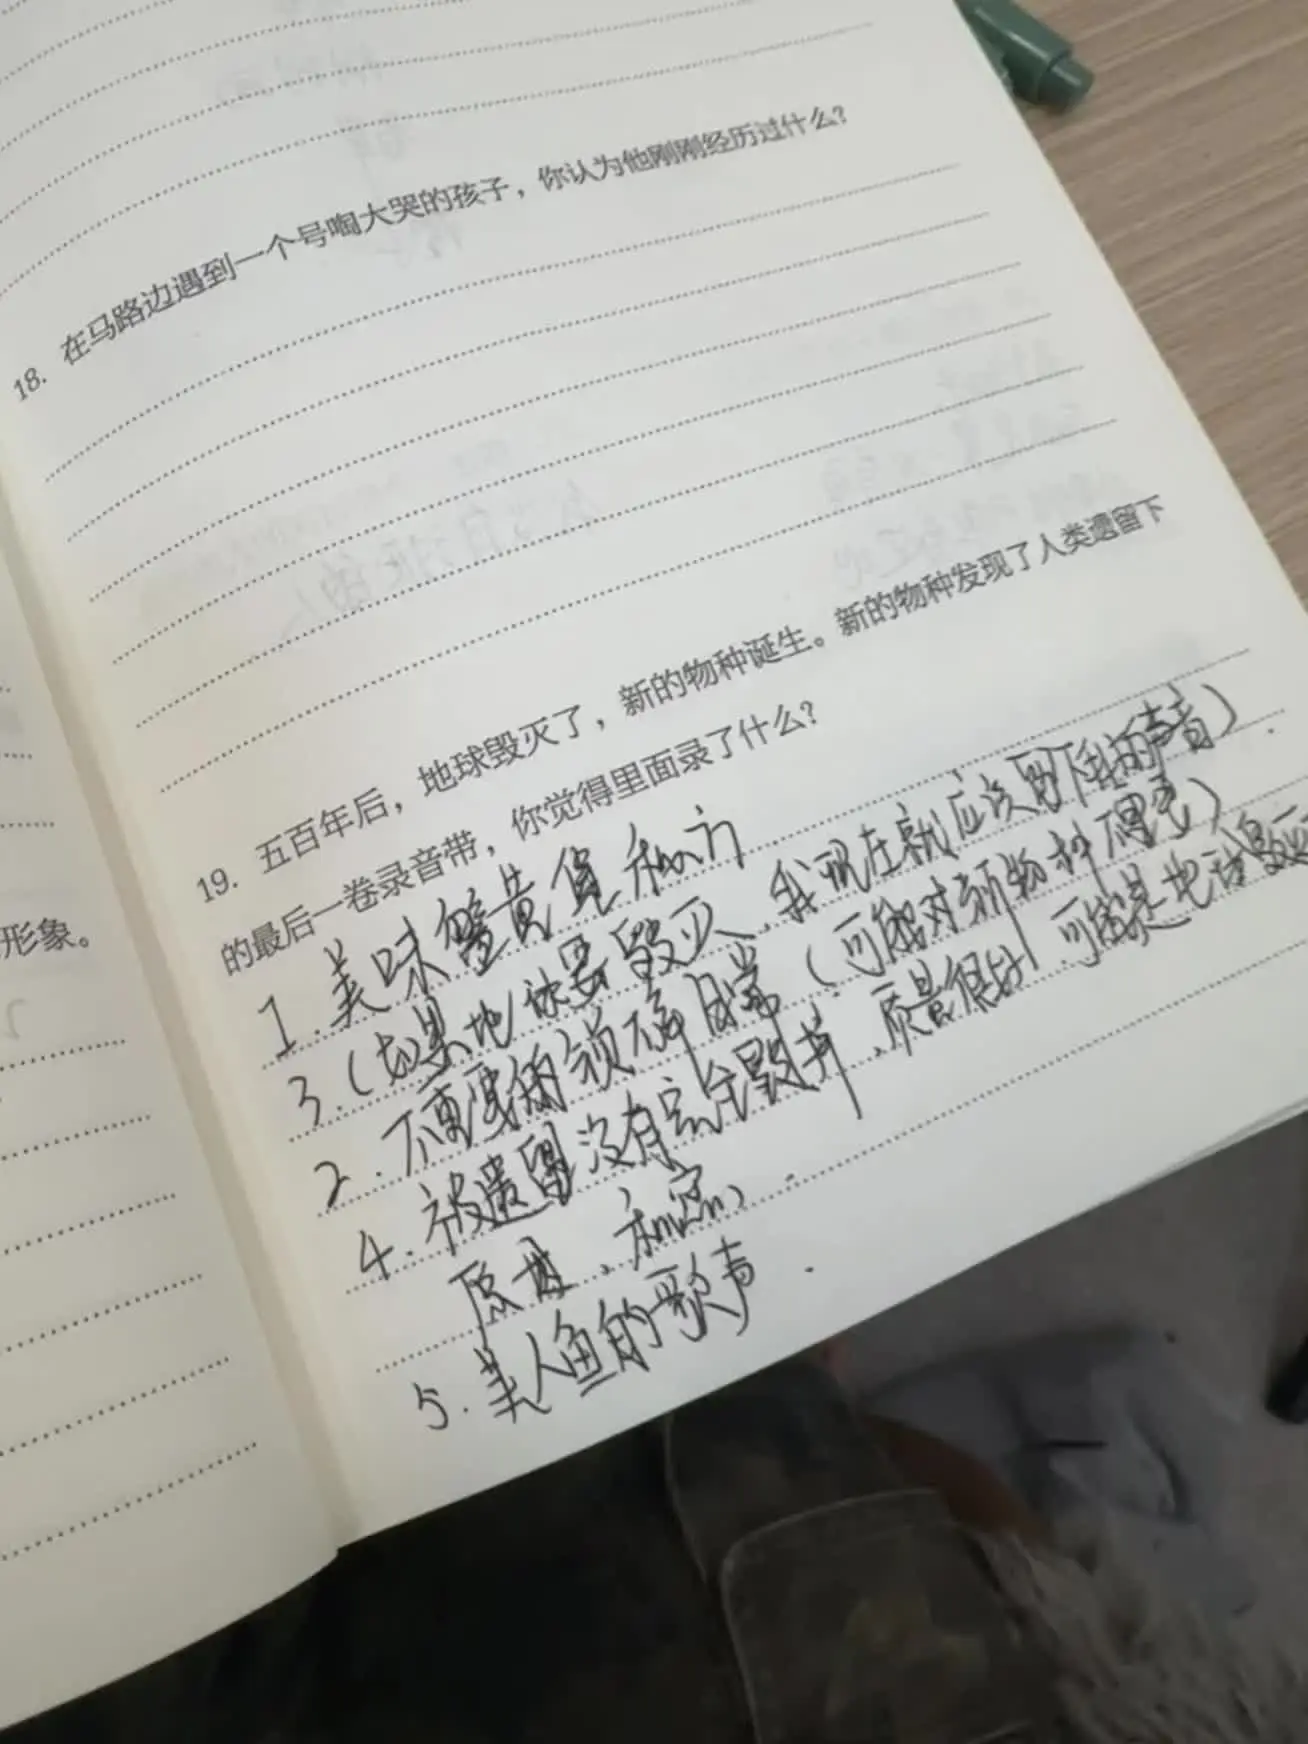 18. 在马路边遇到一个号啕大哭的孩子，你认为他刚刚经历过什么？
19. 五百年后，地球毁灭了，新的物种诞生。新的物种发现了人类遗留下
的最后一卷录音带，你觉得里面录了什么？
形象。
1. 美味蟹黄堡秘方
3.(如果地球要毁灭、我现在就应该留下我的声音)
2. 不要琐碎日常(可能对新物种不漂亮)
4. 被遗留没有完全毁掉、质量很好 可能是地球毁灭
原因、秘密、
5. 美人鱼的歌声.